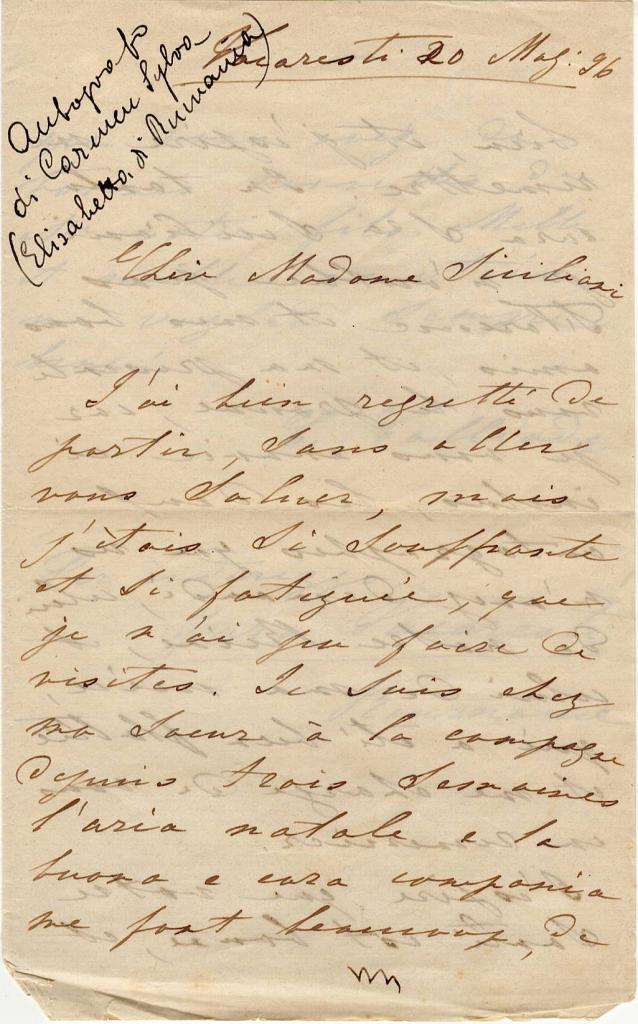 Autografo
di Carmen Sylva
(Elisabetta di Rumania)
Bucaresti 20 Mag: 96
Chère Madame Siciliani
J'ai bien regretté de
partir, sans aller
vous saluer, mais
j'étais si souffrante
et si fatiguée, que
je n'ai pu faire de
visites. Je suis chez
ma soeur à la campagne
depuis trois semaines
l'aria natale e la
buona e cara compania
me font beaucoup, de